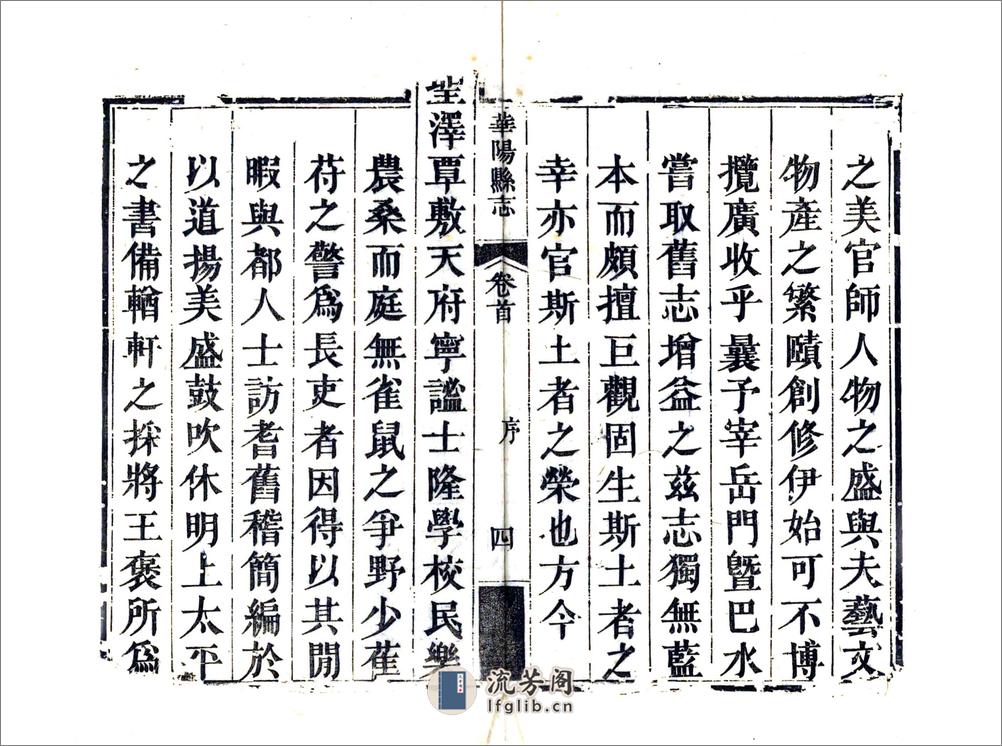 之美官師人物之盛與夫藝文
物產之繁賾創修伊始可不博
攬廣收乎曩予宰岳門曁巴水
嘗取舊志增益之兹志獨無藍
本而頗擅巨觀固生斯土者之
幸亦官斯土者之榮也方今
華陽縣志 卷首 序 四
聖澤覃敷天府寧謐士隆學校民樂
農桑而庭無雀鼠之爭野少萑
苻之警爲長吏者因得以其閒
暇與都人士訪耆舊稽簡編於
以道揚美盛鼓吹休明上太平
之書備輶軒之採將王褒所爲
流芳阁
lfglib.cn